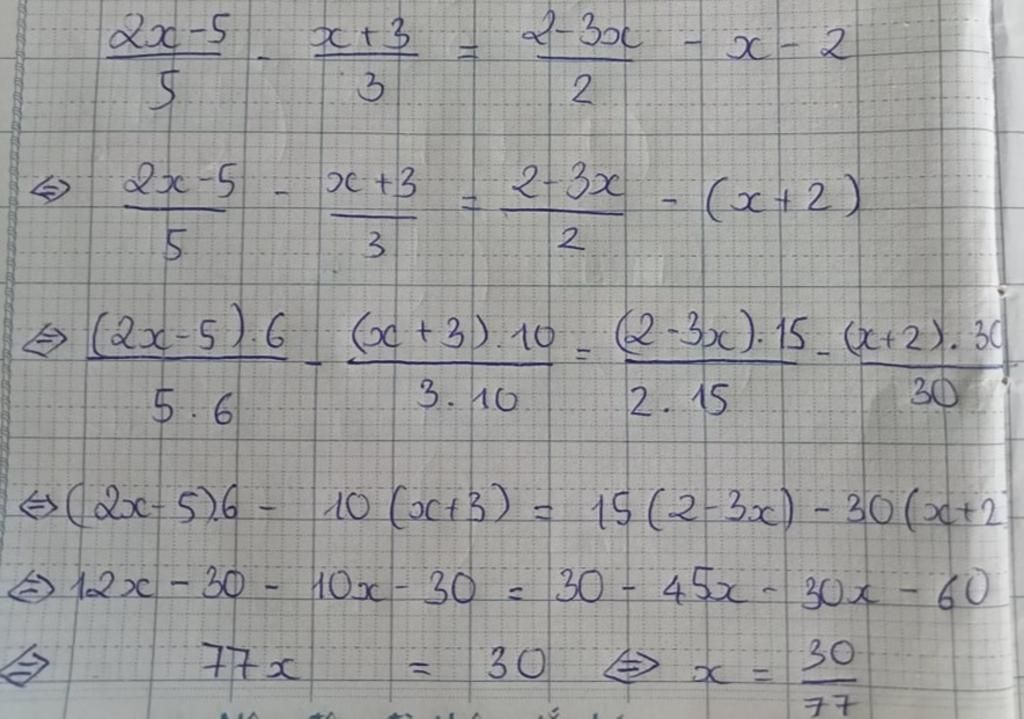 (2x-5)/5 - (x+3)/3 = (2-3x)/2 - x - 2
⇔ (2x-5)/5 - (x+3)/3 = (2-3x)/2 - (x+2)
⇔ ((2x-5).6)/(5.6) - ((x+3).10)/(3.10) = ((2-3x).15)/(2.15) - ((x+2).30)/30
⇔ (2x-5).6 - 10(x+3) = 15(2-3x) - 30(x+2
⇔ 12x - 30 - 10x - 30 = 30 - 45x - 30x - 60
⇔ 77x = 30 ⇔ x = 30/77